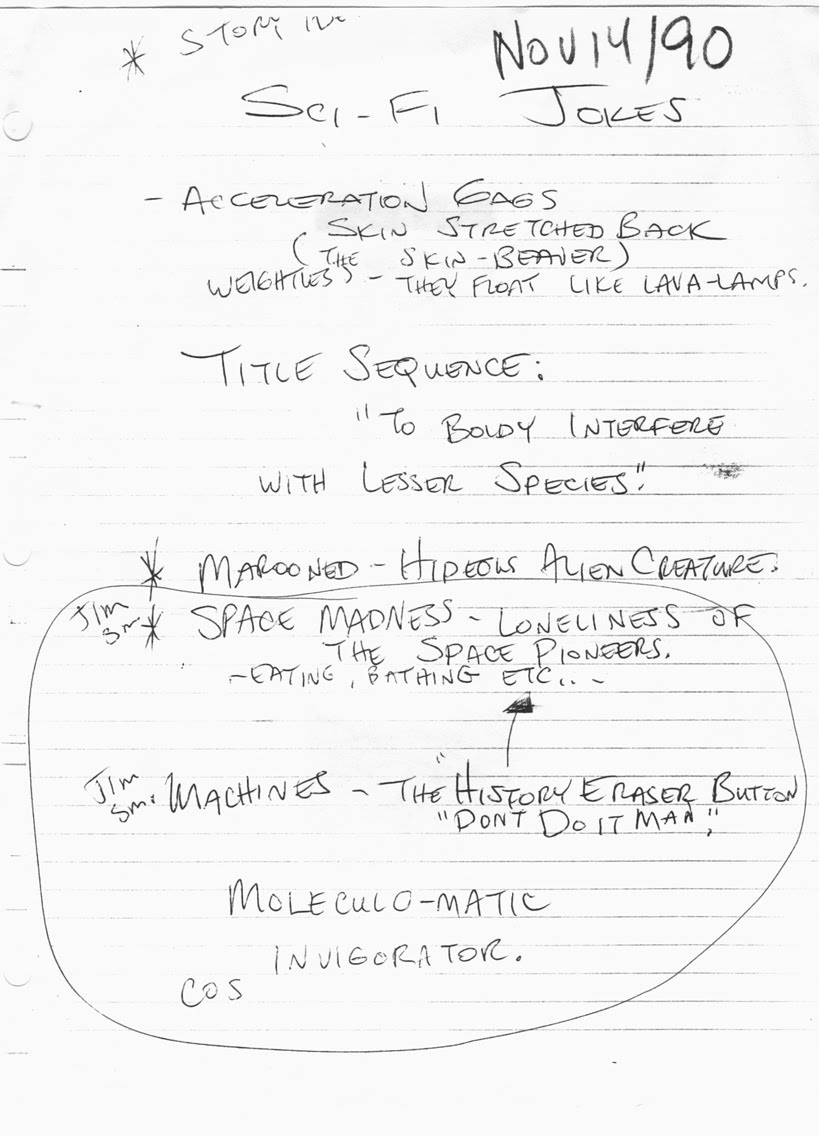 * STORY
NOV 14/90
SCI-FI JOKES
- ACCELERATION GAGS
SKIN STRETCHED BACK
(THE SKIN-BEAVER)
WEIGHTLESS - THEY FLOAT LIKE LAVA-LAMPS.
TITLE SEQUENCE:
"TO BOLDY INTERFERE
WITH LESSER SPECIES".
* MAROONED - HIDEOUS ALIEN CREATURE.
JIM
SM * SPACE MADNESS - LONELINESS OF
THE SPACE PIONEERS.
- EATING, BATHING ETC...
JIM
SM: MACHINES - THE "HISTORY ERASER BUTTON
"DONT DO IT MAN",
MOLECULO-MATIC
INVIGORATOR.
COS